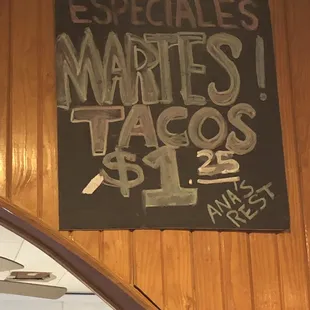 ESPECIALES
MARTES!
TACOS
$1.25
ANA'S
REST